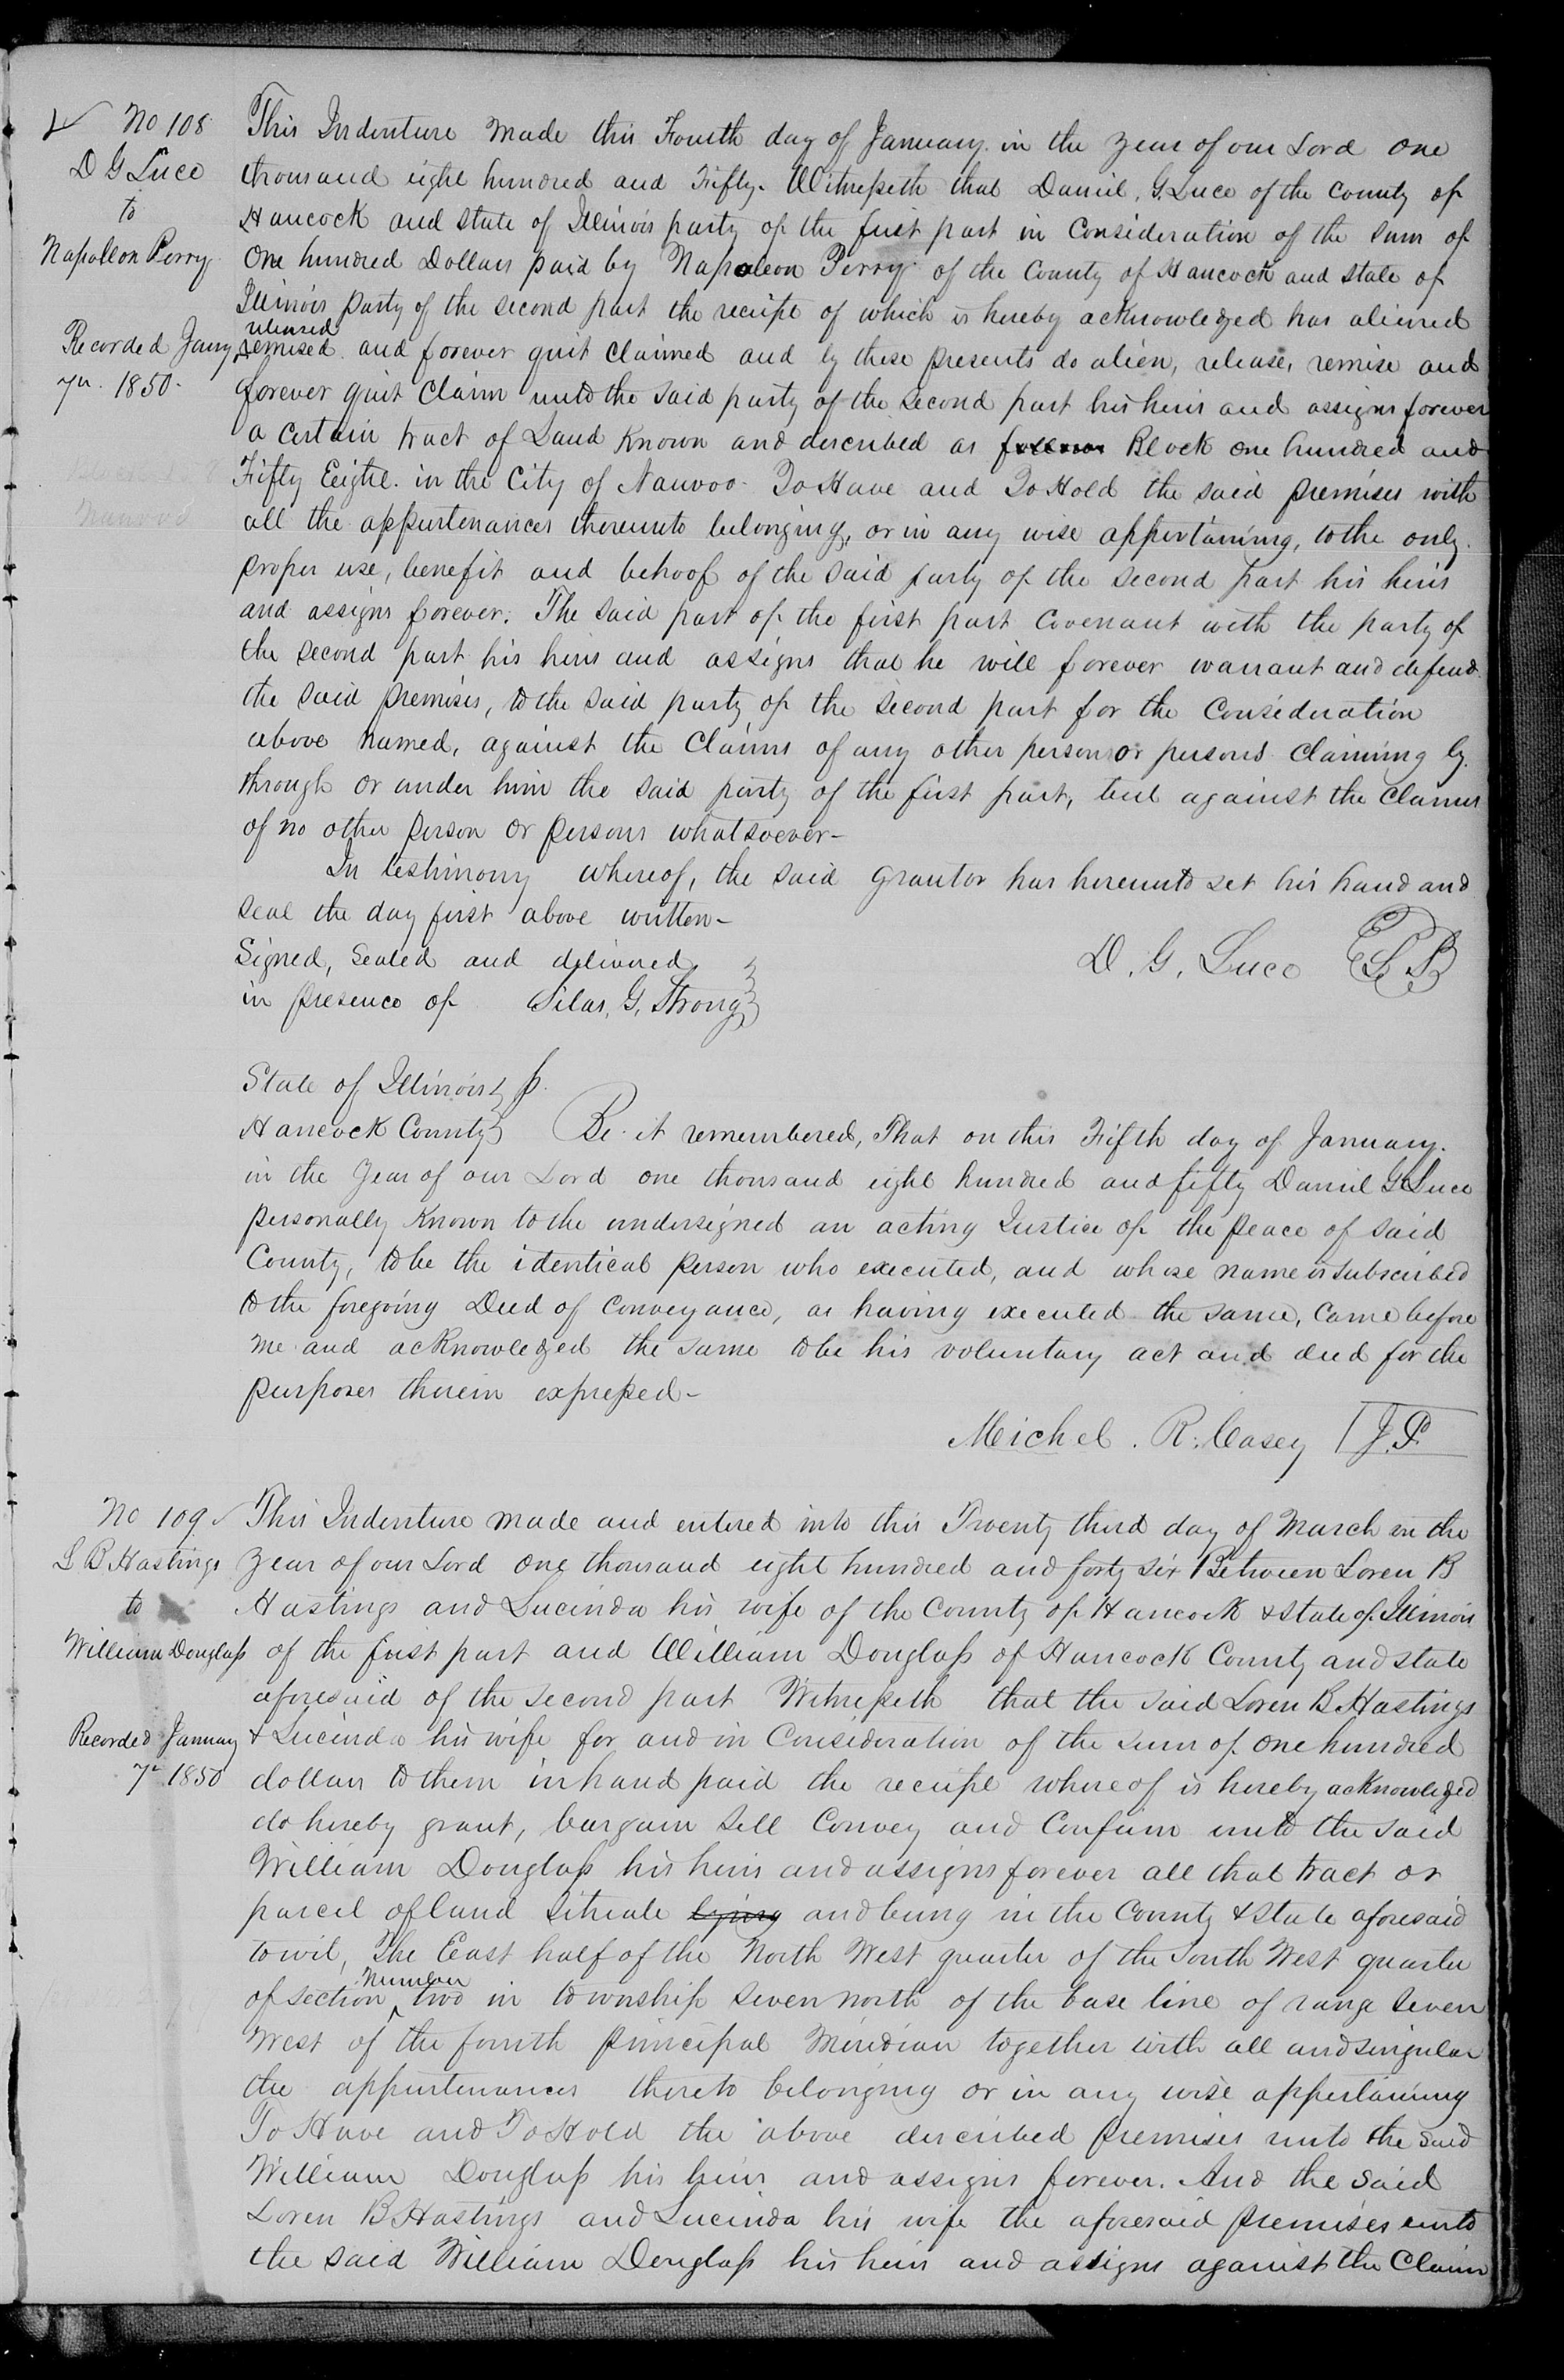 No 108
D G Luce
to
Napoleon Perry
Recorded Jany
7th. 1850-
This Indenture made this Fourth day of January in the year of our Lord one
thousand eight hundred and Fifty. Witnesseth that Daniel. G. Luce of the County of
Hancock and State of Illinois party of the first part in Consideration of the sum of
One hundred Dollars paid by Napoleon Perry of the County of Hancock and State of
Illinois party of the second part the receipt of which is hereby acknowledged has aliened
released
remised and forever quit claimed and by these presents do alien, release, remise and
forever quit Claim unto the said party of the second part his heirs and assigns forever
a certain tract of Land Known and described as follows Block one hundred and
Fifty Eight. in the City of Nauvoo. To Have and To Hold the said premises with
all the appurtenances thereunto belonging, or in any wise appertaining, to the only
proper use, benefit and behoof of the said party of the second part his heirs
and assigns forever. The said part of the first part Covenant with the party of
the second part his heirs and assigns that he will forever warrant and defend
the said premises, to the said party of the second part for the Consideration
above named, against the Claims of any other person or persons claiming by
through or under him the said party of the first part, but against the claims
of no other person or persons whatsoever-
In testimony whereof, the said grantor has hereunto set his hand and
seal the day first above written-
Signed, Sealed and delivered
in presence of Silas. G. Strong
D. G. Luce
State of Illinois ss.
Hancock County Be it remembered, That on this Fifth day of January.
in the year of our Lord one thousand eight hundred and fifty Daniel G Luce
personally Known to the undersigned an acting Justice of the peace of said
County, to be the identical person who executed, and whose name is subscribed
to the foregoing Deed of Conveyance, as having executed the same, came before
me and acknowledged the same to be his voluntary act and deed for the
purposes therein expressed-
Michel. R. Casey J.P.
No 109
L B Hastings
to
William Douglass
Recorded January
7th 1850
This Indenture made and entered into this Twenty third day of March in the
year of our Lord one thousand eight hundred and forty six Between Loren B
Hastings and Lucinda his wife of the County of Hancock & State of Illinois
of the first part and William Douglass of Hancock County and State
aforesaid of the second part Witnesseth that the said Loren B Hastings
& Lucinda his wife for and in Consideration of the sum of one hundred
dollars to them in hand paid the receipt whereof is hereby acknowledged
do hereby grant, bargain Sell Convey and Confirm unto the said
William Douglass his heirs and assigns forever all that tract or
parcel of land Situate lying and being in the County & State aforesaid
towit, The East half of the North West quarter of the South West quarter
number
of section two in township seven north of the base line of range seven
West of the fourth Principal Meridian together with all and singular
the appurtenances thereto belonging or in any wise appertaining
To Have and To Hold the above described premises unto the said
William Douglass his heirs and assigns forever. And the said
Loren B Hastings and Lucinda his wife the aforesaid premises unto
the said William Douglass his heirs and assigns against the Claim